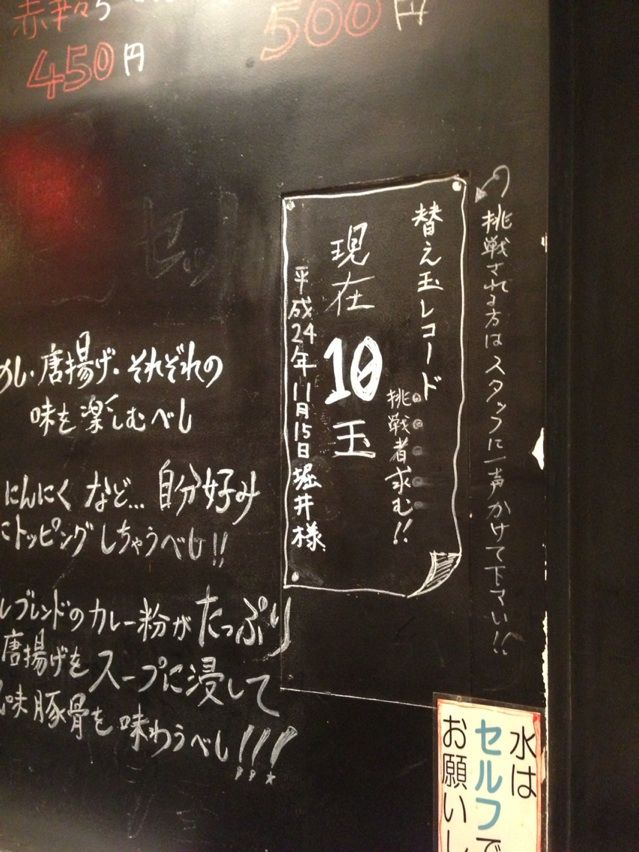 赤辛
450円
500円
挑戦される方はスタッフに一声かけて下さい!!
替え玉レコード
挑戦者求む!!
現在10玉
平成24年11月15日堀井様
唐揚げ・それぞれの
味を楽しむべし
にんにくなど…自分好み
にトッピングしちゃうべし!!
ブレンドのカレー粉がたっぷり
唐揚げをスープに浸して
味豚骨を味わうべし!!!
水は
セルフで
お願いし